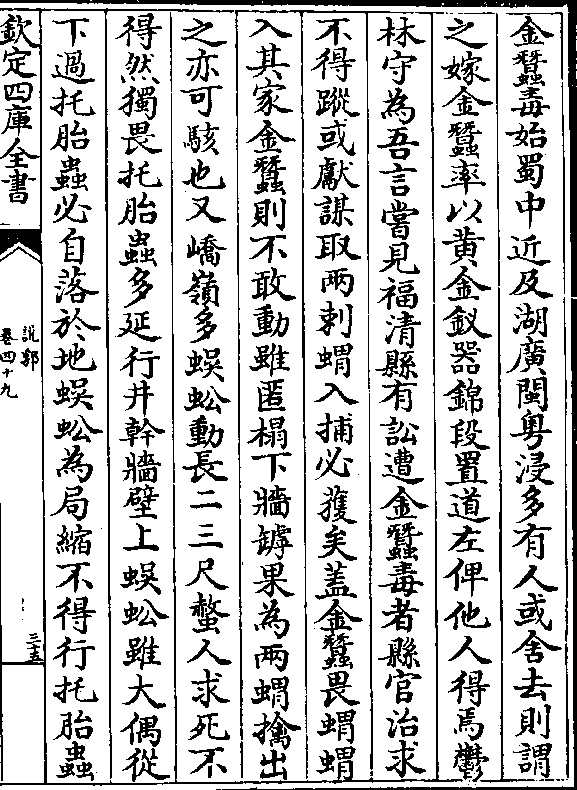 金蠶毒始蜀中近及湖廣閩粤浸多有人或舍去則謂
之嫁金蠶率以黄金釵器錦段置道左俾他人得焉鬱
林守為吾言嘗見福清縣有訟遭金蠶毒者縣官治求
不得蹤或獻謀取兩刺蝟入捕必獲矣蓋金蠶畏蝟蝟
入其家金蠶則不敢動雖匿榻下牆罅果為兩蝟擒出
之亦可駭也又嶠嶺多蜈蚣動長二三尺螫人求死不
得然獨畏托胎蟲多延行井幹牆壁上蜈蚣雖大偶從
下過托胎蟲必自落於地蜈蚣為局縮不得行托胎蟲
欽定四庫全書
說郛
卷四十九
三十五